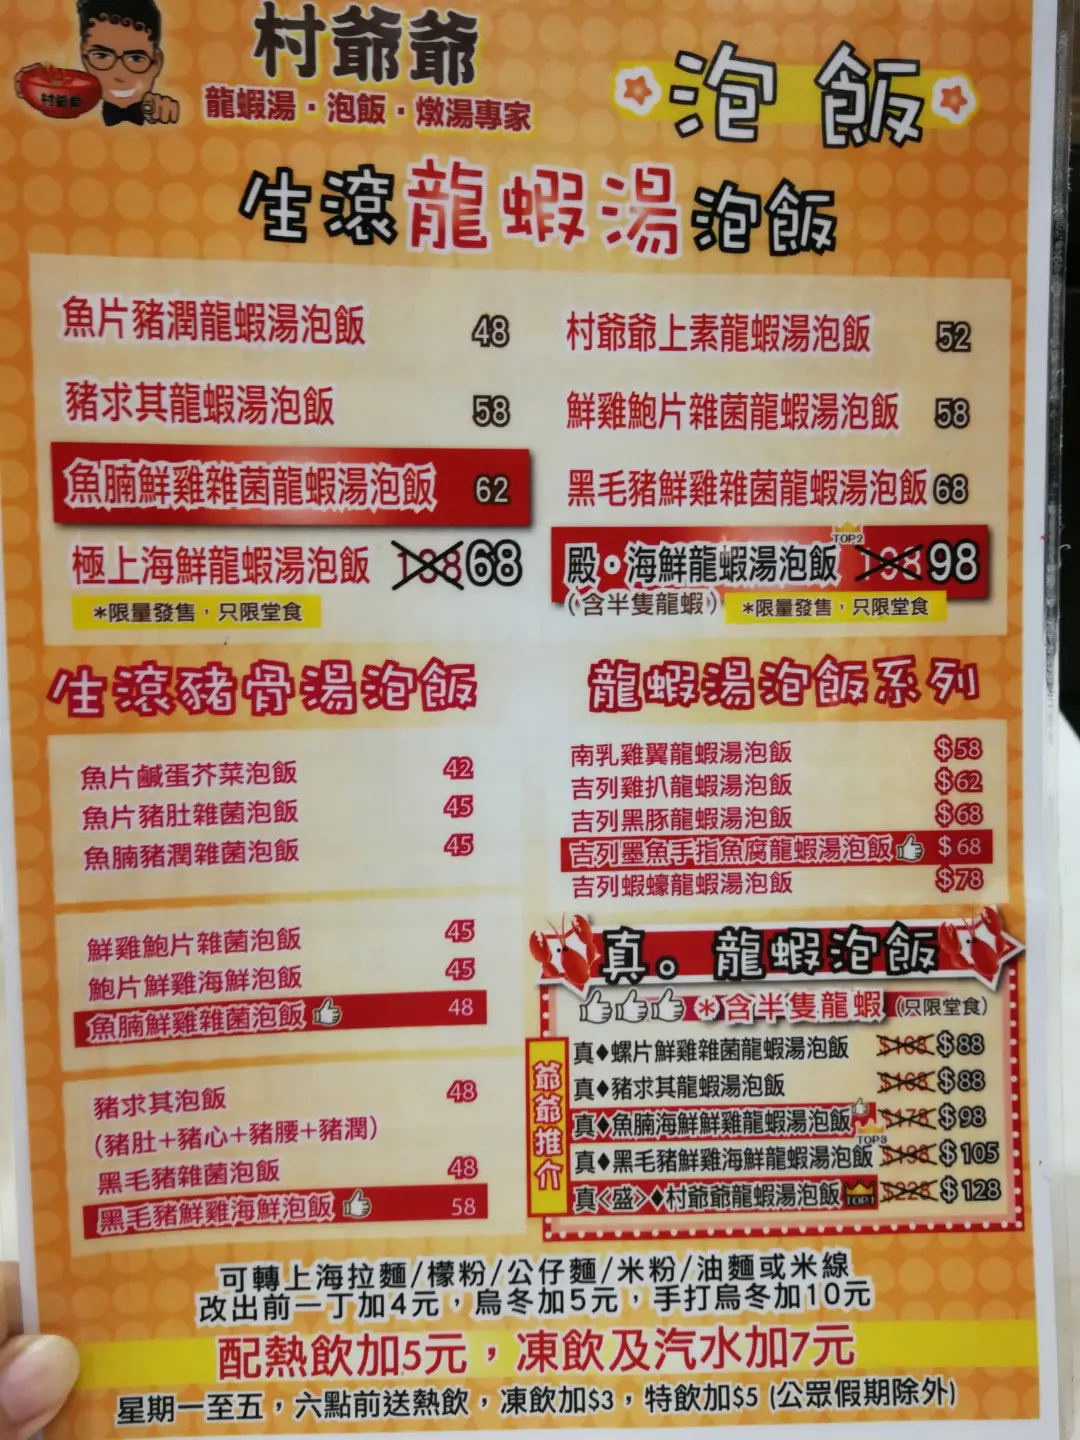 村爺爺
村爺爺
龍蝦湯·泡飯·燉湯專家
泡飯
生滾龍蝦湯泡飯
魚片豬潤龍蝦湯泡飯 48
豬求其龍蝦湯泡飯 58
魚腩鮮雞雜菌龍蝦湯泡飯 62
極上海鮮龍蝦湯泡飯 138 68
*限量發售，只限堂食
村爺爺上素龍蝦湯泡飯 52
鮮雞鮑片雜菌龍蝦湯泡飯 58
黑毛豬鮮雞雜菌龍蝦湯泡飯 68
TOP2
殿·海鮮龍蝦湯泡飯 198 98
(含半隻龍蝦) *限量發售，只限堂食
生滾豬骨湯泡飯
魚片鹹蛋芥菜泡飯 42
魚片豬肚雜菌泡飯 45
魚腩豬潤雜菌泡飯 45
鮮雞鮑片雜菌泡飯 45
鮑片鮮雞海鮮泡飯 45
魚腩鮮雞雜菌泡飯 48
豬求其泡飯 48
(豬肚+豬心+豬腰+豬潤)
黑毛豬雜菌泡飯 48
黑毛豬鮮雞海鮮泡飯 58
龍蝦湯泡飯系列
南乳雞翼龍蝦湯泡飯 $58
吉列雞扒龍蝦湯泡飯 $62
吉列黑豚龍蝦湯泡飯 $68
吉列墨魚手指魚腐龍蝦湯泡飯 $68
吉列蝦蠔龍蝦湯泡飯 $78
真。龍蝦泡飯
*含半隻龍蝦 (只限堂食)
爺爺推介
真♦螺片鮮雞雜菌龍蝦湯泡飯 $168 $88
真♦豬求其龍蝦湯泡飯 $168 $88
真♦魚腩海鮮鮮雞龍蝦湯泡飯 $178 $98
TOP3
真♦黑毛豬鮮雞海鮮龍蝦湯泡飯 $198 $105
真<盛>♦村爺爺龍蝦湯泡飯 TOP1 $228 $128
可轉上海拉麵/檬粉/公仔麵/米粉/油麵或米線
改出前一丁加4元，烏冬加5元，手打烏冬加10元
配熱飲加5元，凍飲及汽水加7元
星期一至五，六點前送熱飲，凍飲加$3，特飲加$5 (公眾假期除外)